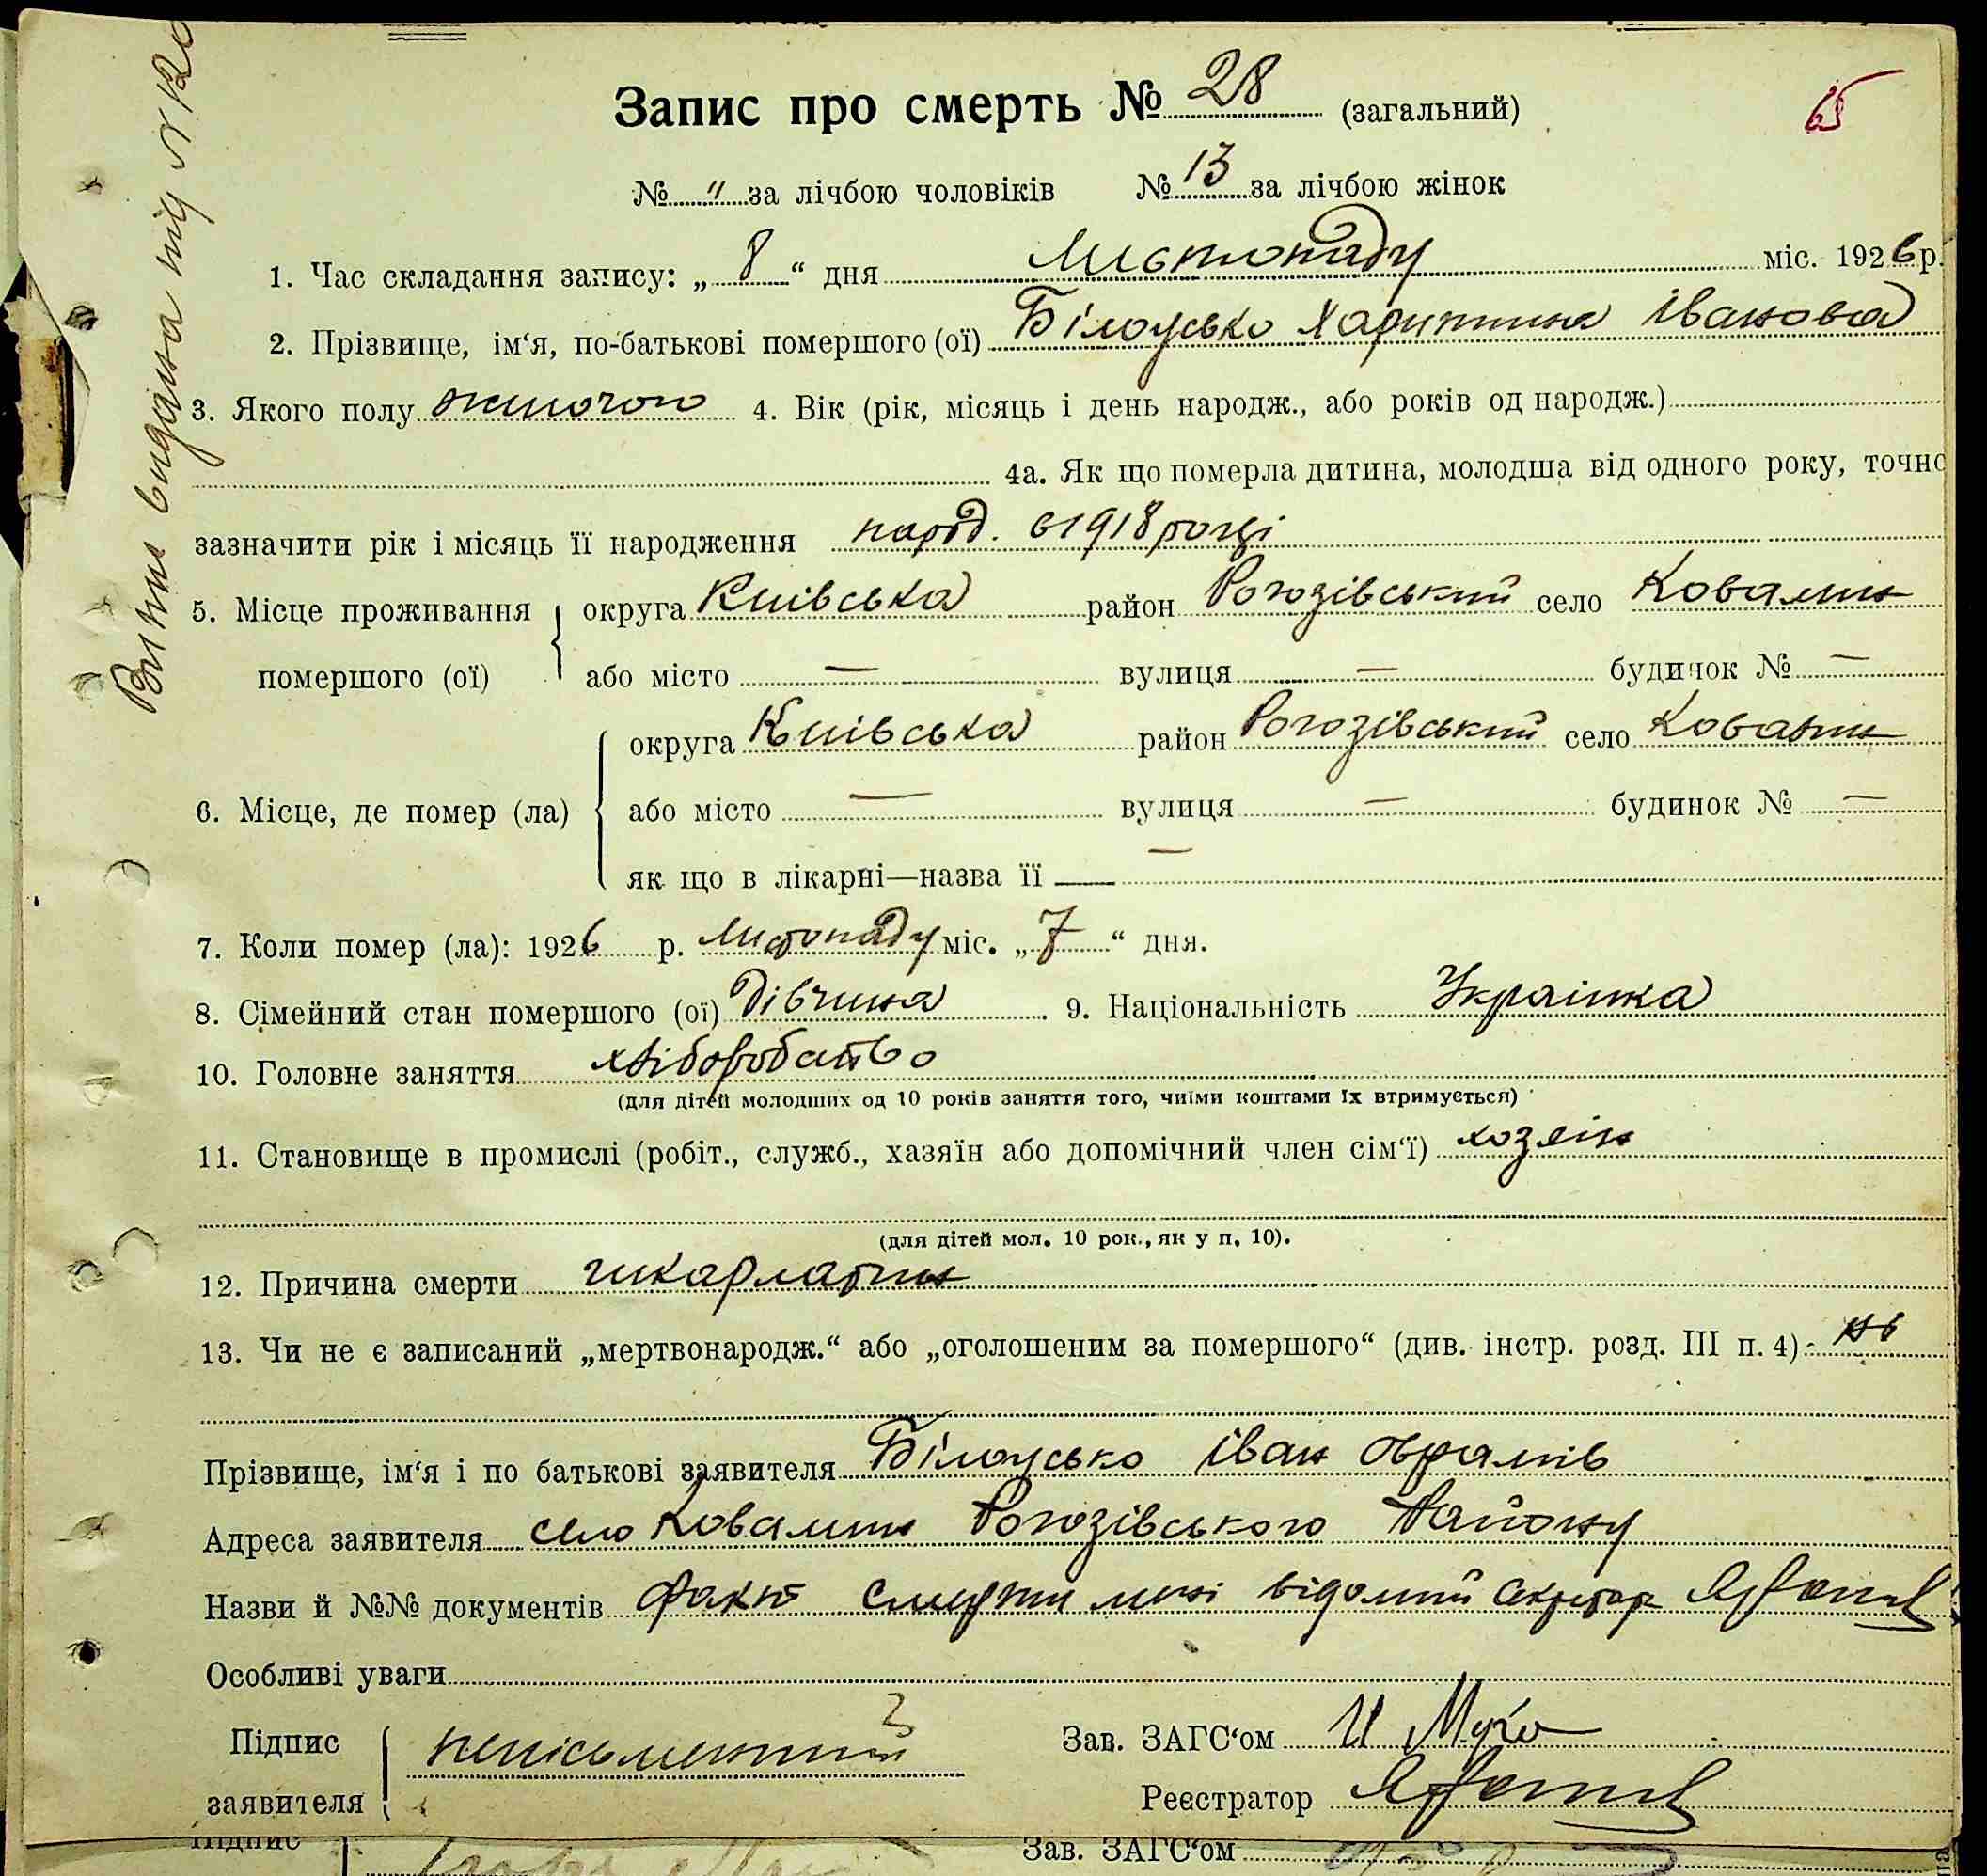 Запис про смерть № 28 (загальний)
65
№ " за лічбою чоловіків № 13 за лічбою жінок
1. Час складання запису: „ 8 “ дня Листопаду міс. 1926 р.
2. Прізвище, ім‘я, по-батькові помершого (ої) Білоусько Харитина Іванова
3. Якого полу жиночого 4. Вік (рік, місяць і день народж., або років од народж.)
4а. Як що померла дитина, молодша від одного року, точно
зазначити рік і місяць її народження народ. в 1918 році
5. Місце проживання округа Київська район Рогозівський село Ковалин
помершого (ої) або місто — вулиця — будинок № —
округа Київська район Рогозівський село Ковалин
6. Місце, де помер (ла) або місто — вулиця — будинок № —
як що в лікарні—назва її —
7. Коли помер (ла): 1926 р. Листопаду міс. „ 7 “ дня.
8. Сімейний стан помершого (ої) Дівчина 9. Національність Українка
10. Головне заняття хліборобство
(для дітей молодших од 10 років заняття того, чиїми коштами їх втримується)
11. Становище в промислі (робіт., служб., хазяїн або допомічний член сім‘ї) хозеін
(для дітей мол. 10 рок., як у п. 10).
12. Причина смерти шкарлатин
13. Чи не є записаний „мертвонародж.“ або „оголошеним за помершого“ (див. інстр. розд. III п. 4) ні
Прізвище, ім‘я і по батькові заявителя Білоусько Іван Оврамів
Адреса заявителя село Ковалин Рогозівського Району
Назви й №№ документів Факт смерти мені відомий Секретар
Особливі уваги
Підпис заявителя неписьменний
Зав. ЗАГС‘ом И Муха
Реєстратор
Підпис
Зав. ЗАГС‘ом
Випис видана під №